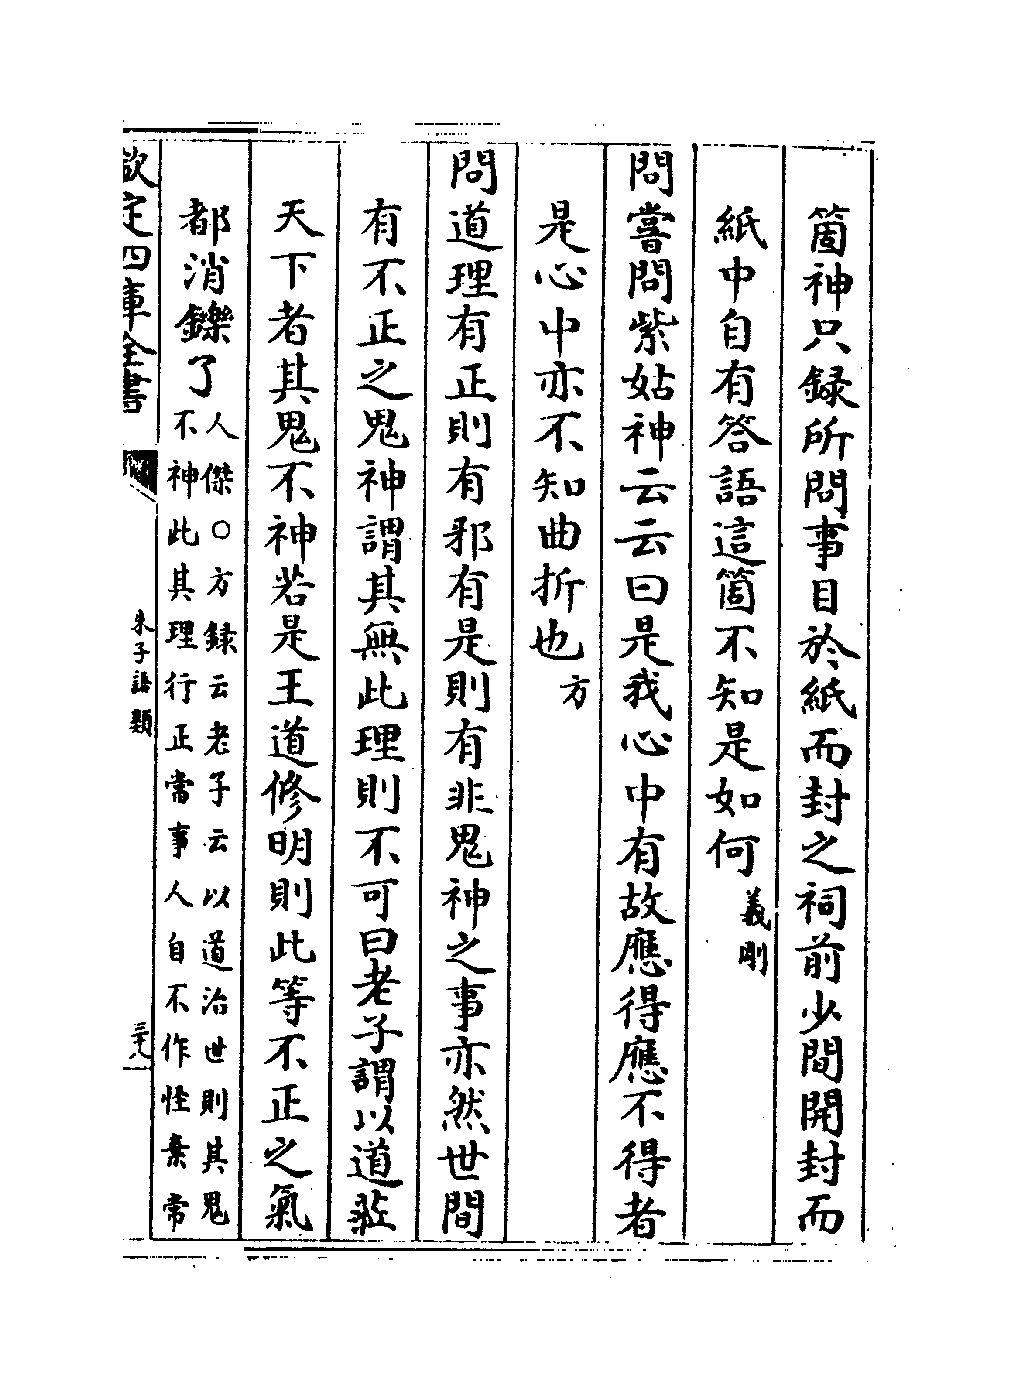 箇神只録所問事目於紙而封之祠前少間開封而
紙中自有答語這箇不知是如何義剛
問嘗問紫姑神云云曰是我心中有故應得應不得者
是心中亦不知曲折也方
問道理有正則有邪有是則有非鬼神之事亦然世間
有不正之鬼神謂其無此理則不可曰老子謂以道莅
天下者其鬼不神若是王道修明則此等不正之氣
都消鑠了
人傑○方録云老子云以道治世則其鬼
不神此其理行正常事人自不作怪棄常
欽定四庫全書
朱子語類
三十八